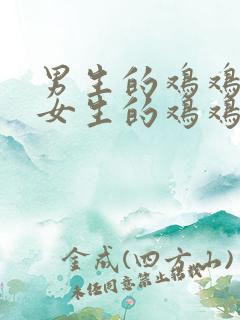 男生的鸡鸡
女生的鸡鸡
金成(四方小)
未任同意禁止転載